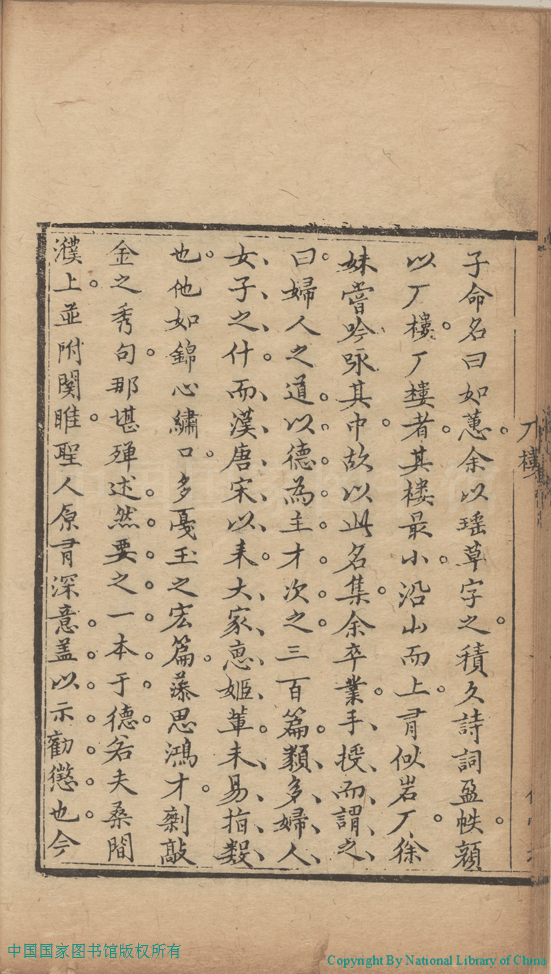 子命名曰如蕙余以瑶草字之積久詩詞盈帙顔
以厂樓厂樓者其樓最小沿山而上有似岩厂徐
妹嘗吟咏其中故以此名集余卒業手授而謂之
曰婦人之道以德為主才次之三百篇類多婦人
女子之什而漢唐宋以来大家恵姬軰未易指數
也他如錦心繡口多戞玉之宏篇藻思鴻才剩敲
金之秀句那堪殫述然要之一本于德若夫桑間
濮上並附関雎聖人原有深意盖以示勸懲也今
厂樓
中国国家图书馆版权所有
Copyright By National Library of China